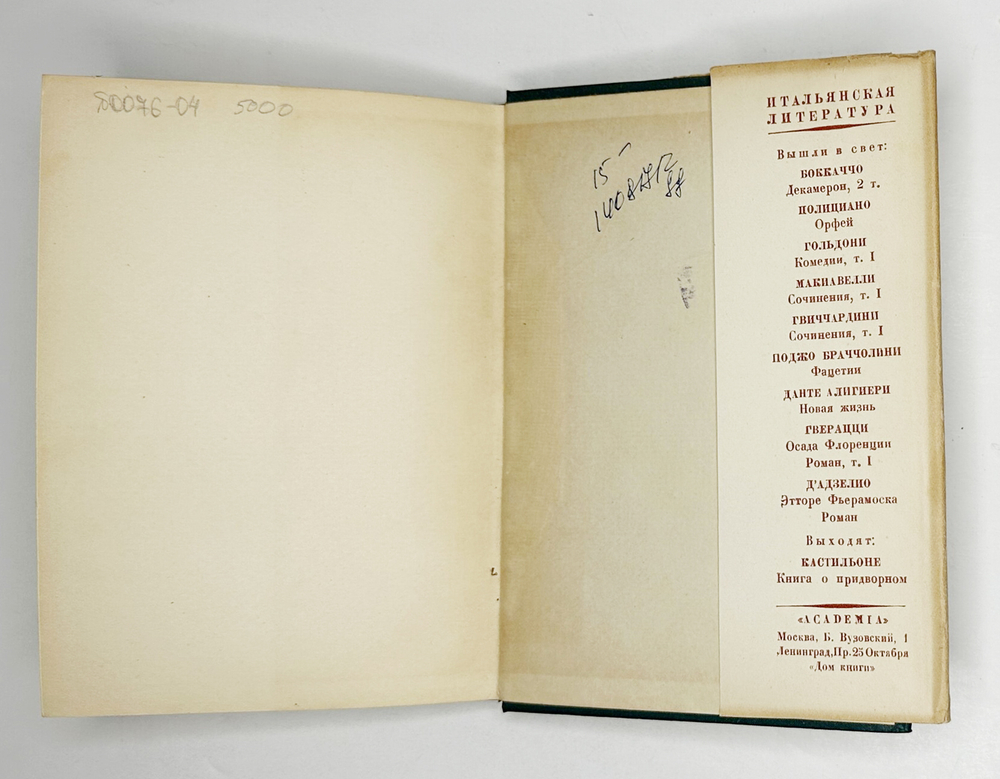 5000
15
ИТАЛЬЯНСКАЯ
ЛИТЕРАТУРА
Вышли в свет:
БОККАЧЧО
Декамерон, 2 т.
ПОЛИЦИАНО
Орфей
ГОЛЬДОНИ
Комедии, т. I
МАКИАВЕЛЛИ
Сочинения, т. I
ГВИЧЧАРДИНИ
Сочинения, т. I
ПОДЖО БРАЧЧОЛИНИ
Фацетии
ДАНТЕ АЛИГИЕРИ
Новая жизнь
ГВЕРАЦЦИ
Осада Флоренции
Роман, т. I
Д'АДЗЕЛИО
Этторе Фьерамоска
Роман
Выходят:
КАСТИЛЬОНЕ
Книга о придворном
«ACADEMIA»
Москва, Б. Вузовский, 1
Ленинград, Пр. 25 Октября
«Дом книги»